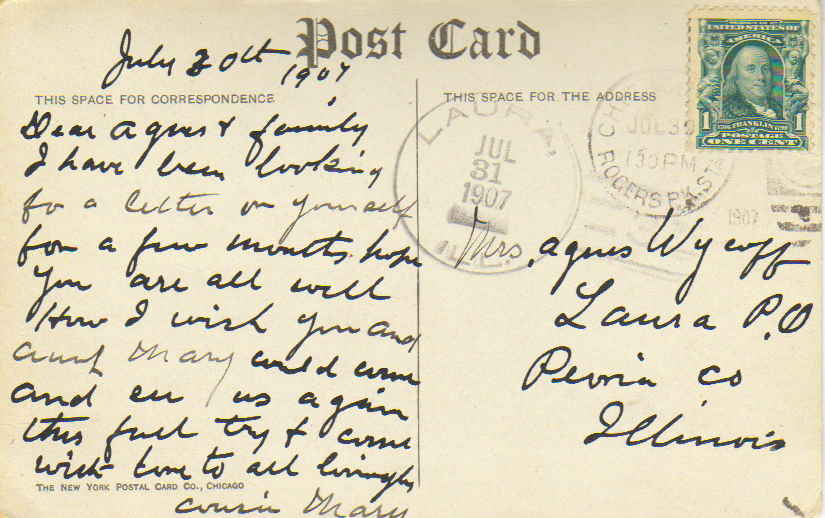 Post Card
July 30th 1907
THIS SPACE FOR CORRESPONDENCE
THIS SPACE FOR THE ADDRESS
Dear Agnes & family
I have been looking
for a letter or yourself
for a few months. hope
you are all well
How I wish you and
aunt Mary would come
and us again
this fall try & come
with love to all
cousin Mary
THE NEW YORK POSTAL CARD CO., CHICAGO
LAURA,
JUL
31
1907
ILL.
JUL 30
PM
ROGERS PK. STA
1907
UNITED STATES OF
AMERICA
1 FRANKLIN 1
POSTAGE
ONE CENT
Mrs. Agnes Wycoff
Laura P.O
Peoria Co
Illinois